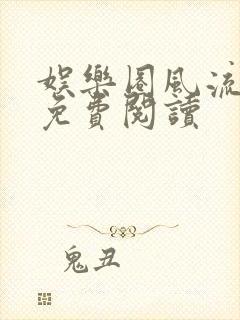 娛樂圈風流
免費閱讀
鬼丑